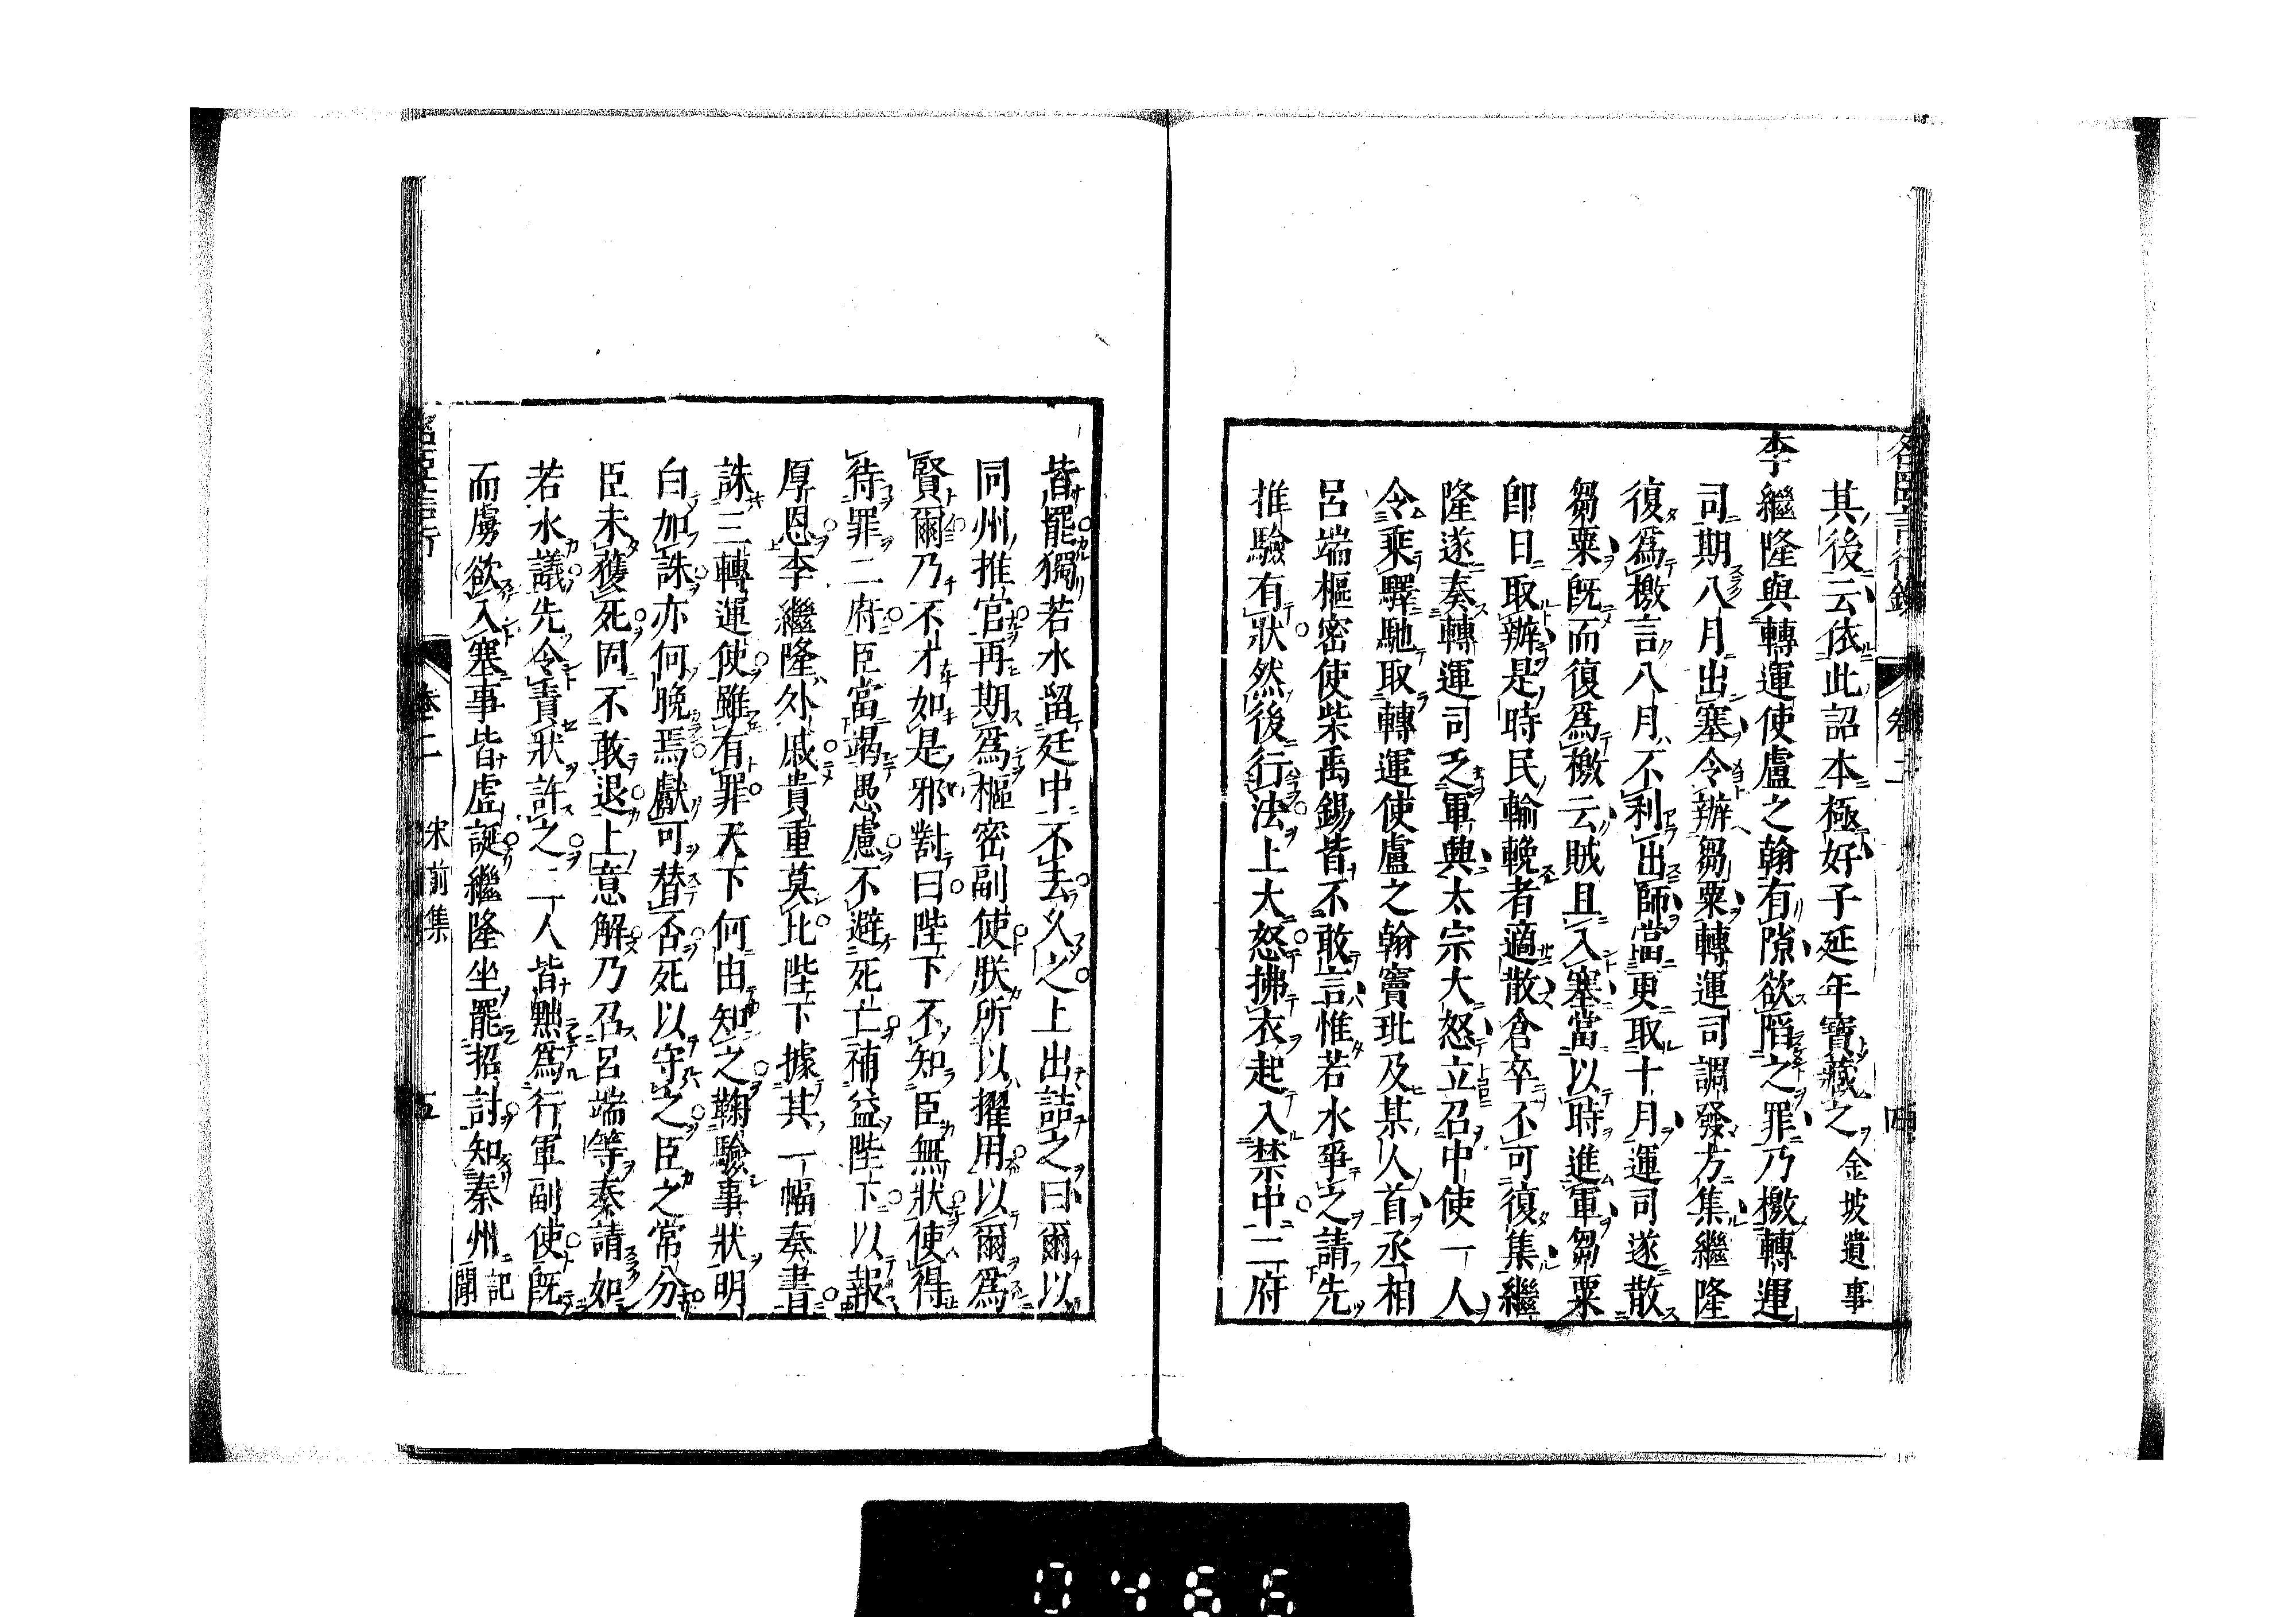 其後云依此詔本極好子延年寶藏之金坡遺事
李繼隆與轉運使盧之翰有隙欲陷之罪乃檄轉運
司期八月出塞令辦芻粟轉運司調發方集繼隆
復爲檄言八月不利出師當更取十月運司遂散
芻粟既而復爲檄云賊且入塞當以時進軍芻粟
卽日取辦是時民輸輓者適散倉卒不可復集繼
隆遂奏轉運司乏軍興太宗大怒立召中使一人
令乘驛馳取轉運使盧之翰竇玭及某人首丞相
呂端樞密使柴禹錫皆不敢言惟若水爭之請先
推驗有狀然後行法上大怒拂衣起入禁中二府
皆罷獨若水留廷中不去久之上出詰之曰爾以
同州推官再期爲樞密副使朕所以擢用以爾爲
賢爾乃不才如是邪對曰陛下不知臣無狀使得
待罪二府臣當竭愚慮不避死亡補益陛下以報
厚恩李繼隆外戚貴重莫比陛下據其一幅奏書
誅三轉運使雖有罪天下何由知之鞫驗事狀明
白加誅亦何晚焉獻可替否死以守之臣之常分
臣未獲死固不敢退上意解乃召呂端等奏請如
若水議先令責狀許之二人皆黜爲行軍副使既
而虜欲入塞事皆虛誕繼隆坐罷招討知秦州記聞
卷二 宋前集 五